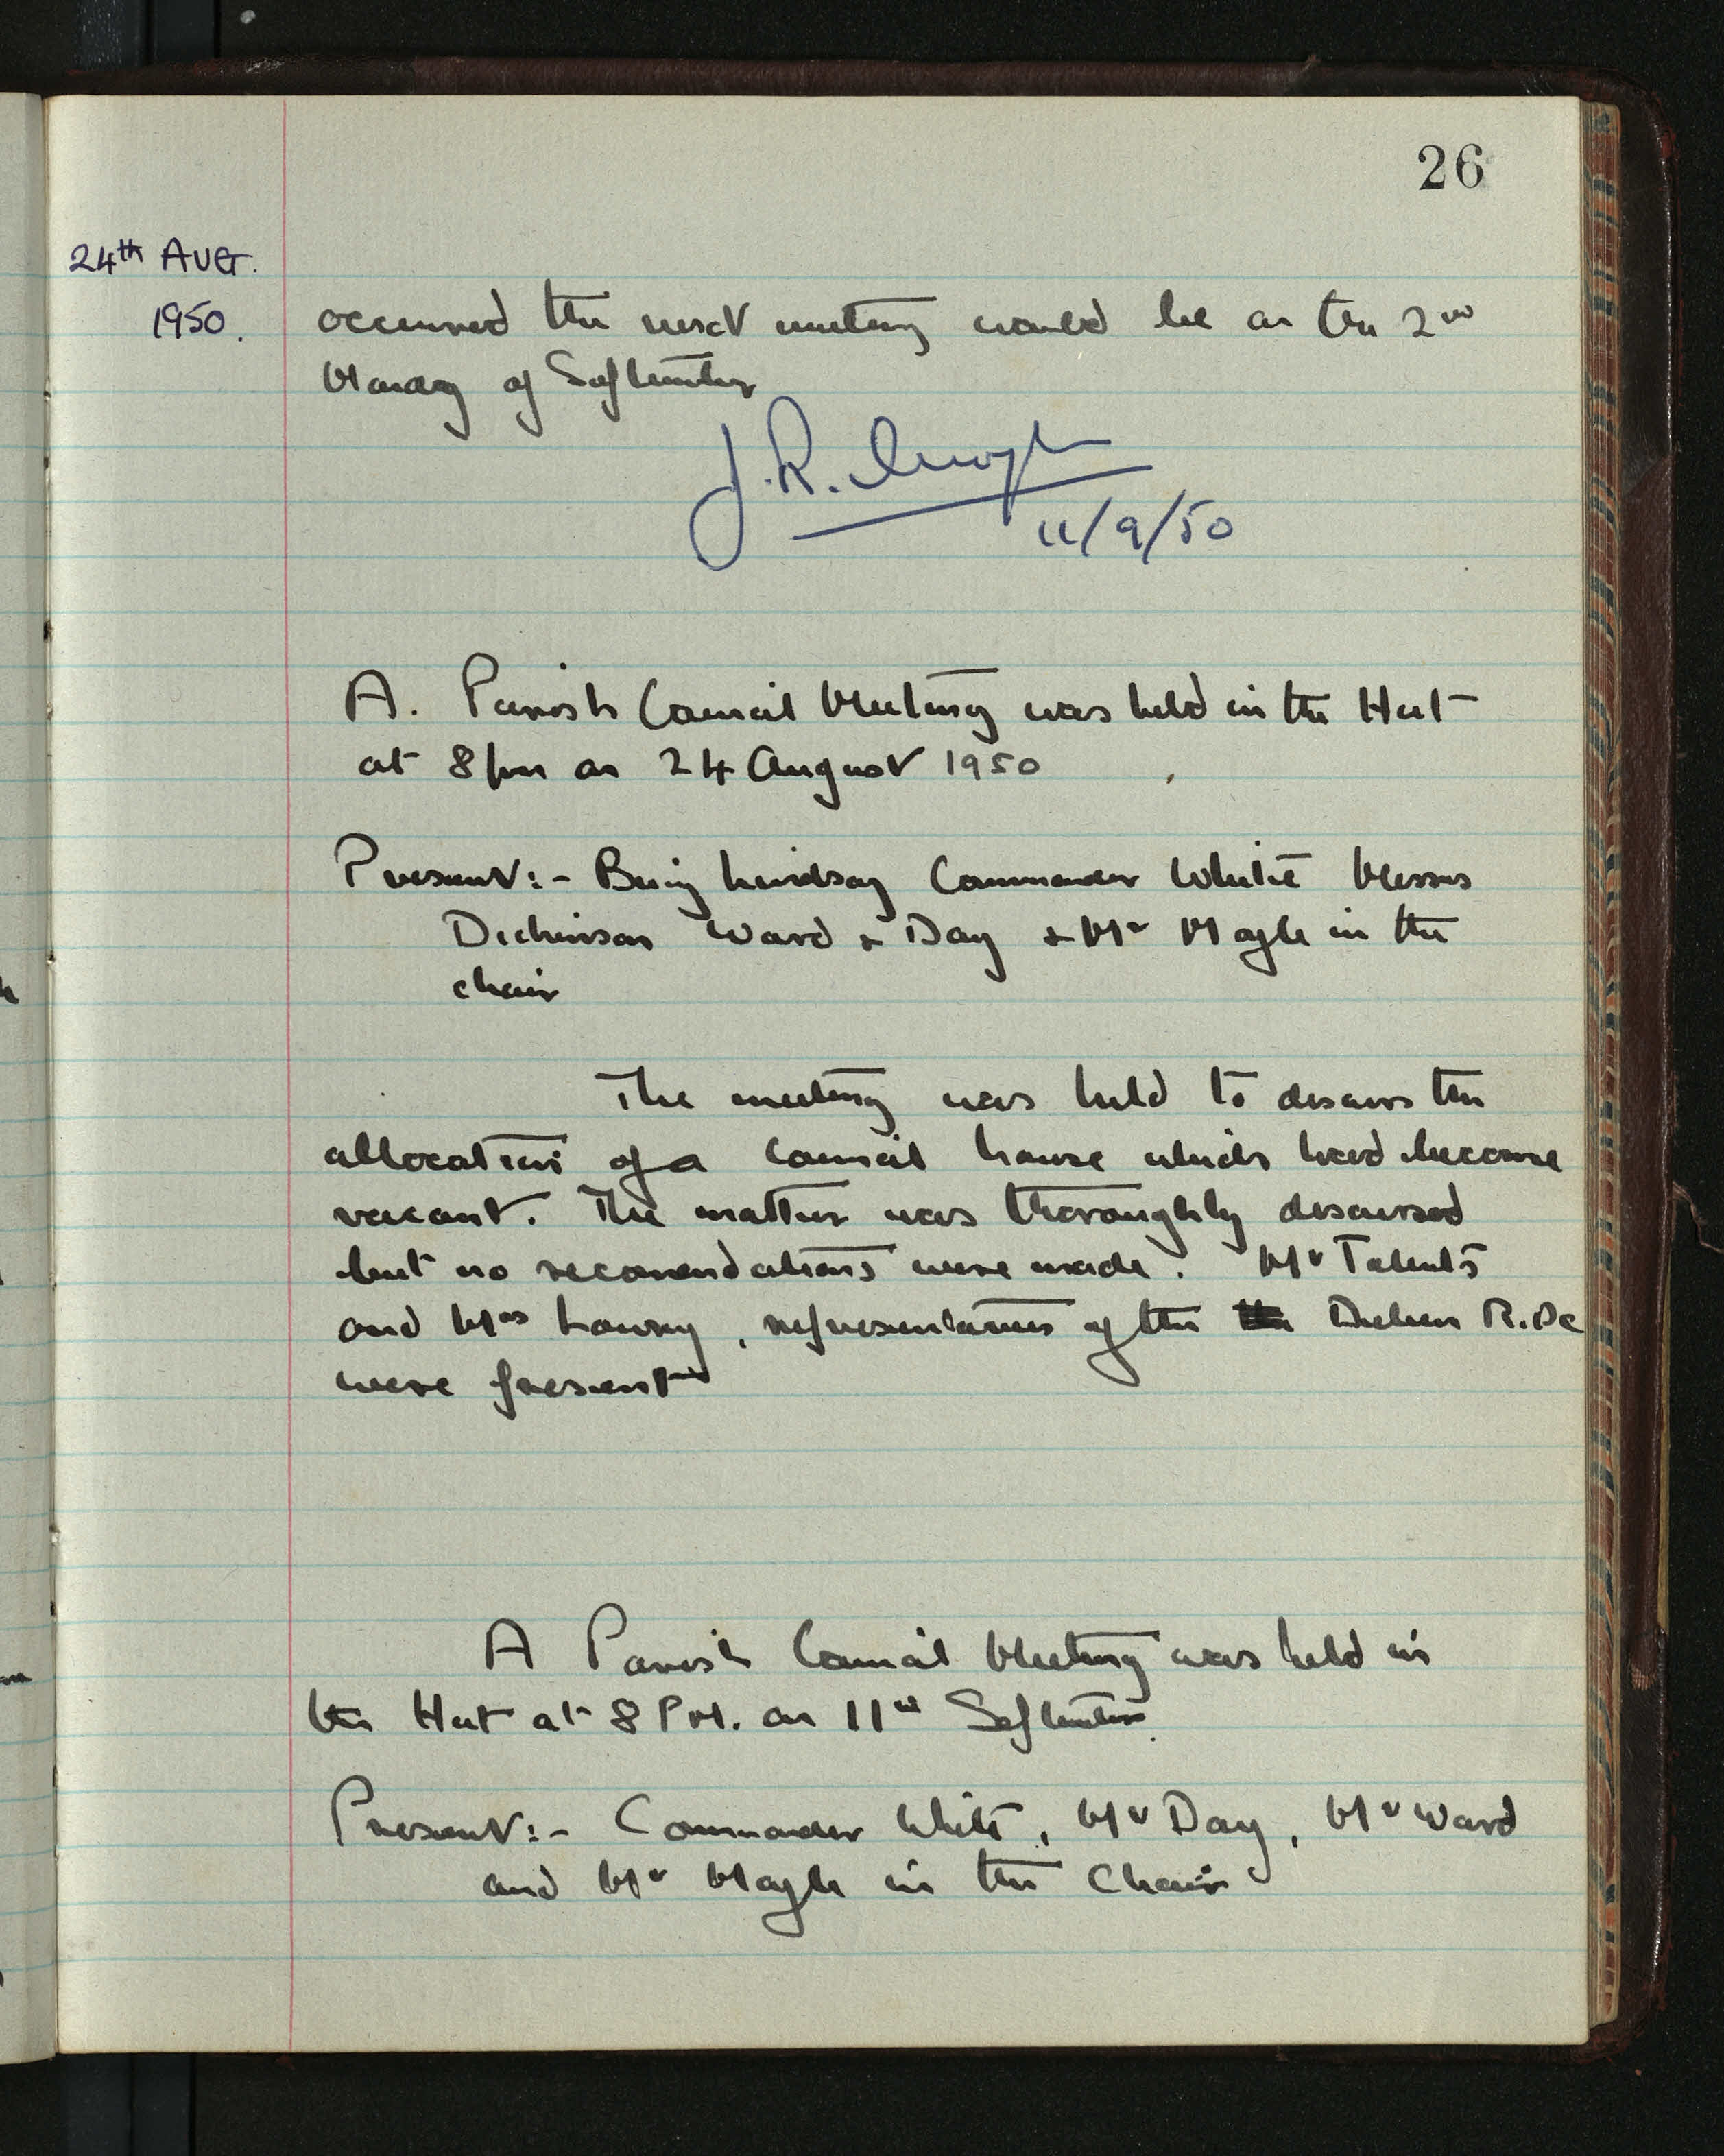 26
24th AUG.
1950.
occurred the next meeting would be on the 2nd
Monday of September
J.R.
11/9/50
A. Parish Council Meeting was held in the Hut
at 8pm on 24 August 1950
Present:- Brig Lindsay Commander White Messrs
Dickinson Ward & Day & Mr Mayle in the
chair
The meeting was held to discuss the
allocation of a Council house which had become
vacant. The matter was thoroughly discussed
but no recomendations were made. Mr Talents
and Mrs Lowry, representatives of the R.DC
were present
A Parish Council Meeting was held in
the Hut at 8 PM. on 11th September.
Present:- Commander White, Mr Day, Mr Ward
and Mr Mayle in the Chair